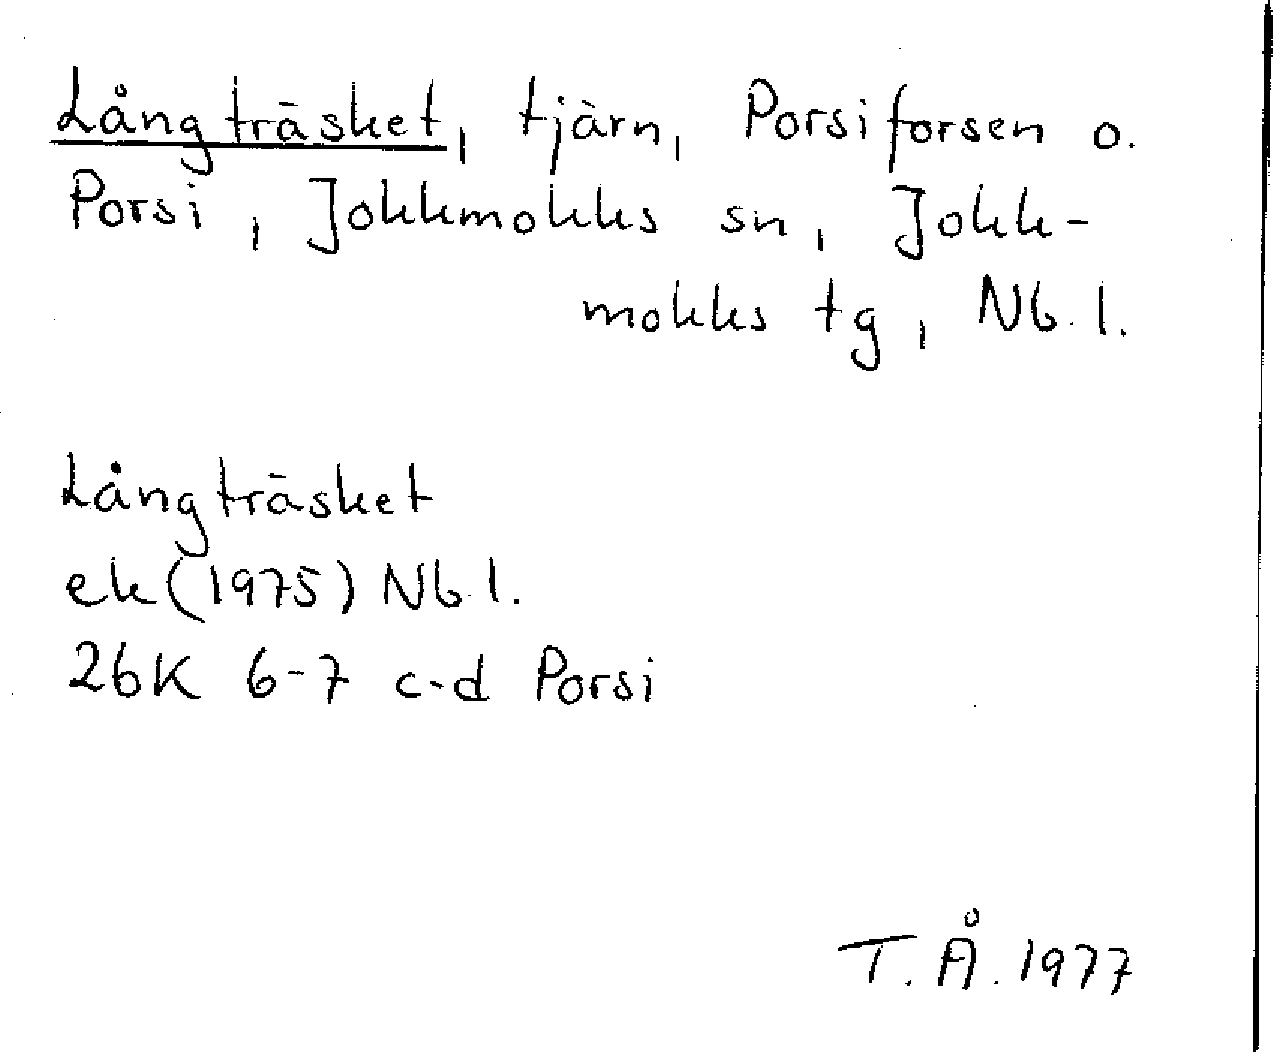 Långträsket, tjärn, Porsiforsen o.
Porsi, Jokkmokks sn, Jokk-
mokks tg, Nb. l.
Långträsket
ek (1975) Nb l.
26K 6-7 c-d Porsi
T. Å. 1977